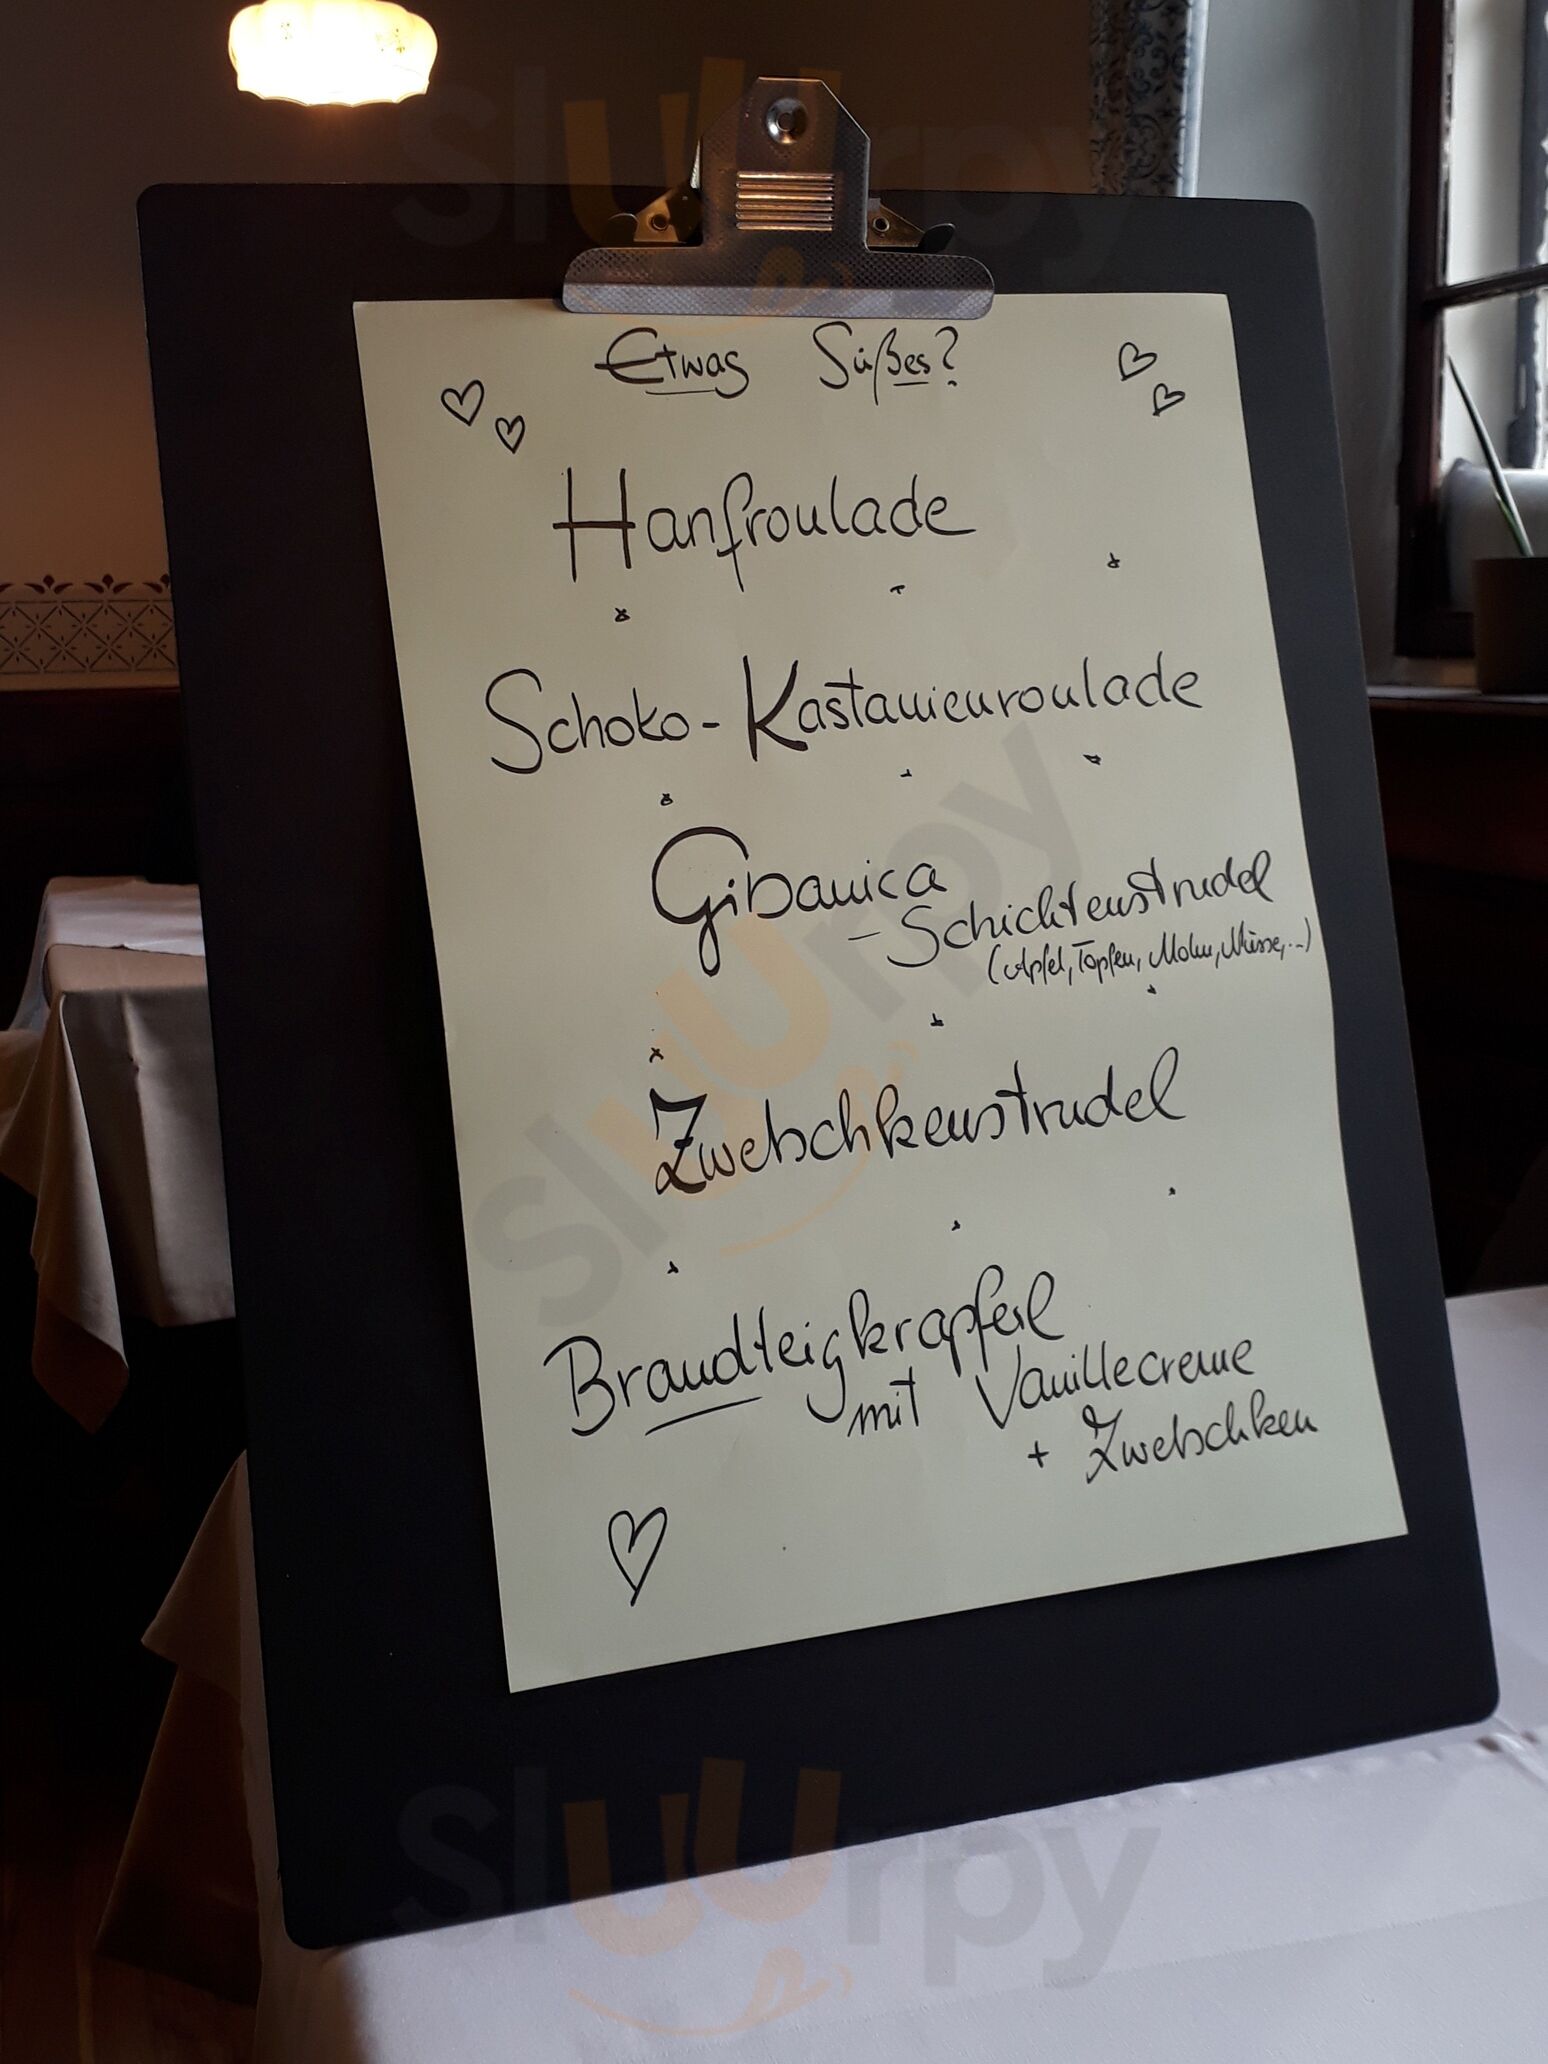 Etwas Süßes?
Hanfroulade
Schoko-Kastanienroulade
Gibanica
- Schichtenstrudel
(Apfel, Topfen, Mohn, Nüsse,...)
Zwetschkenstrudel
Brandteigkrapferl
mit Vanillecreme
+ Zwetschken
sluurpy
sluurpy
sluurpy